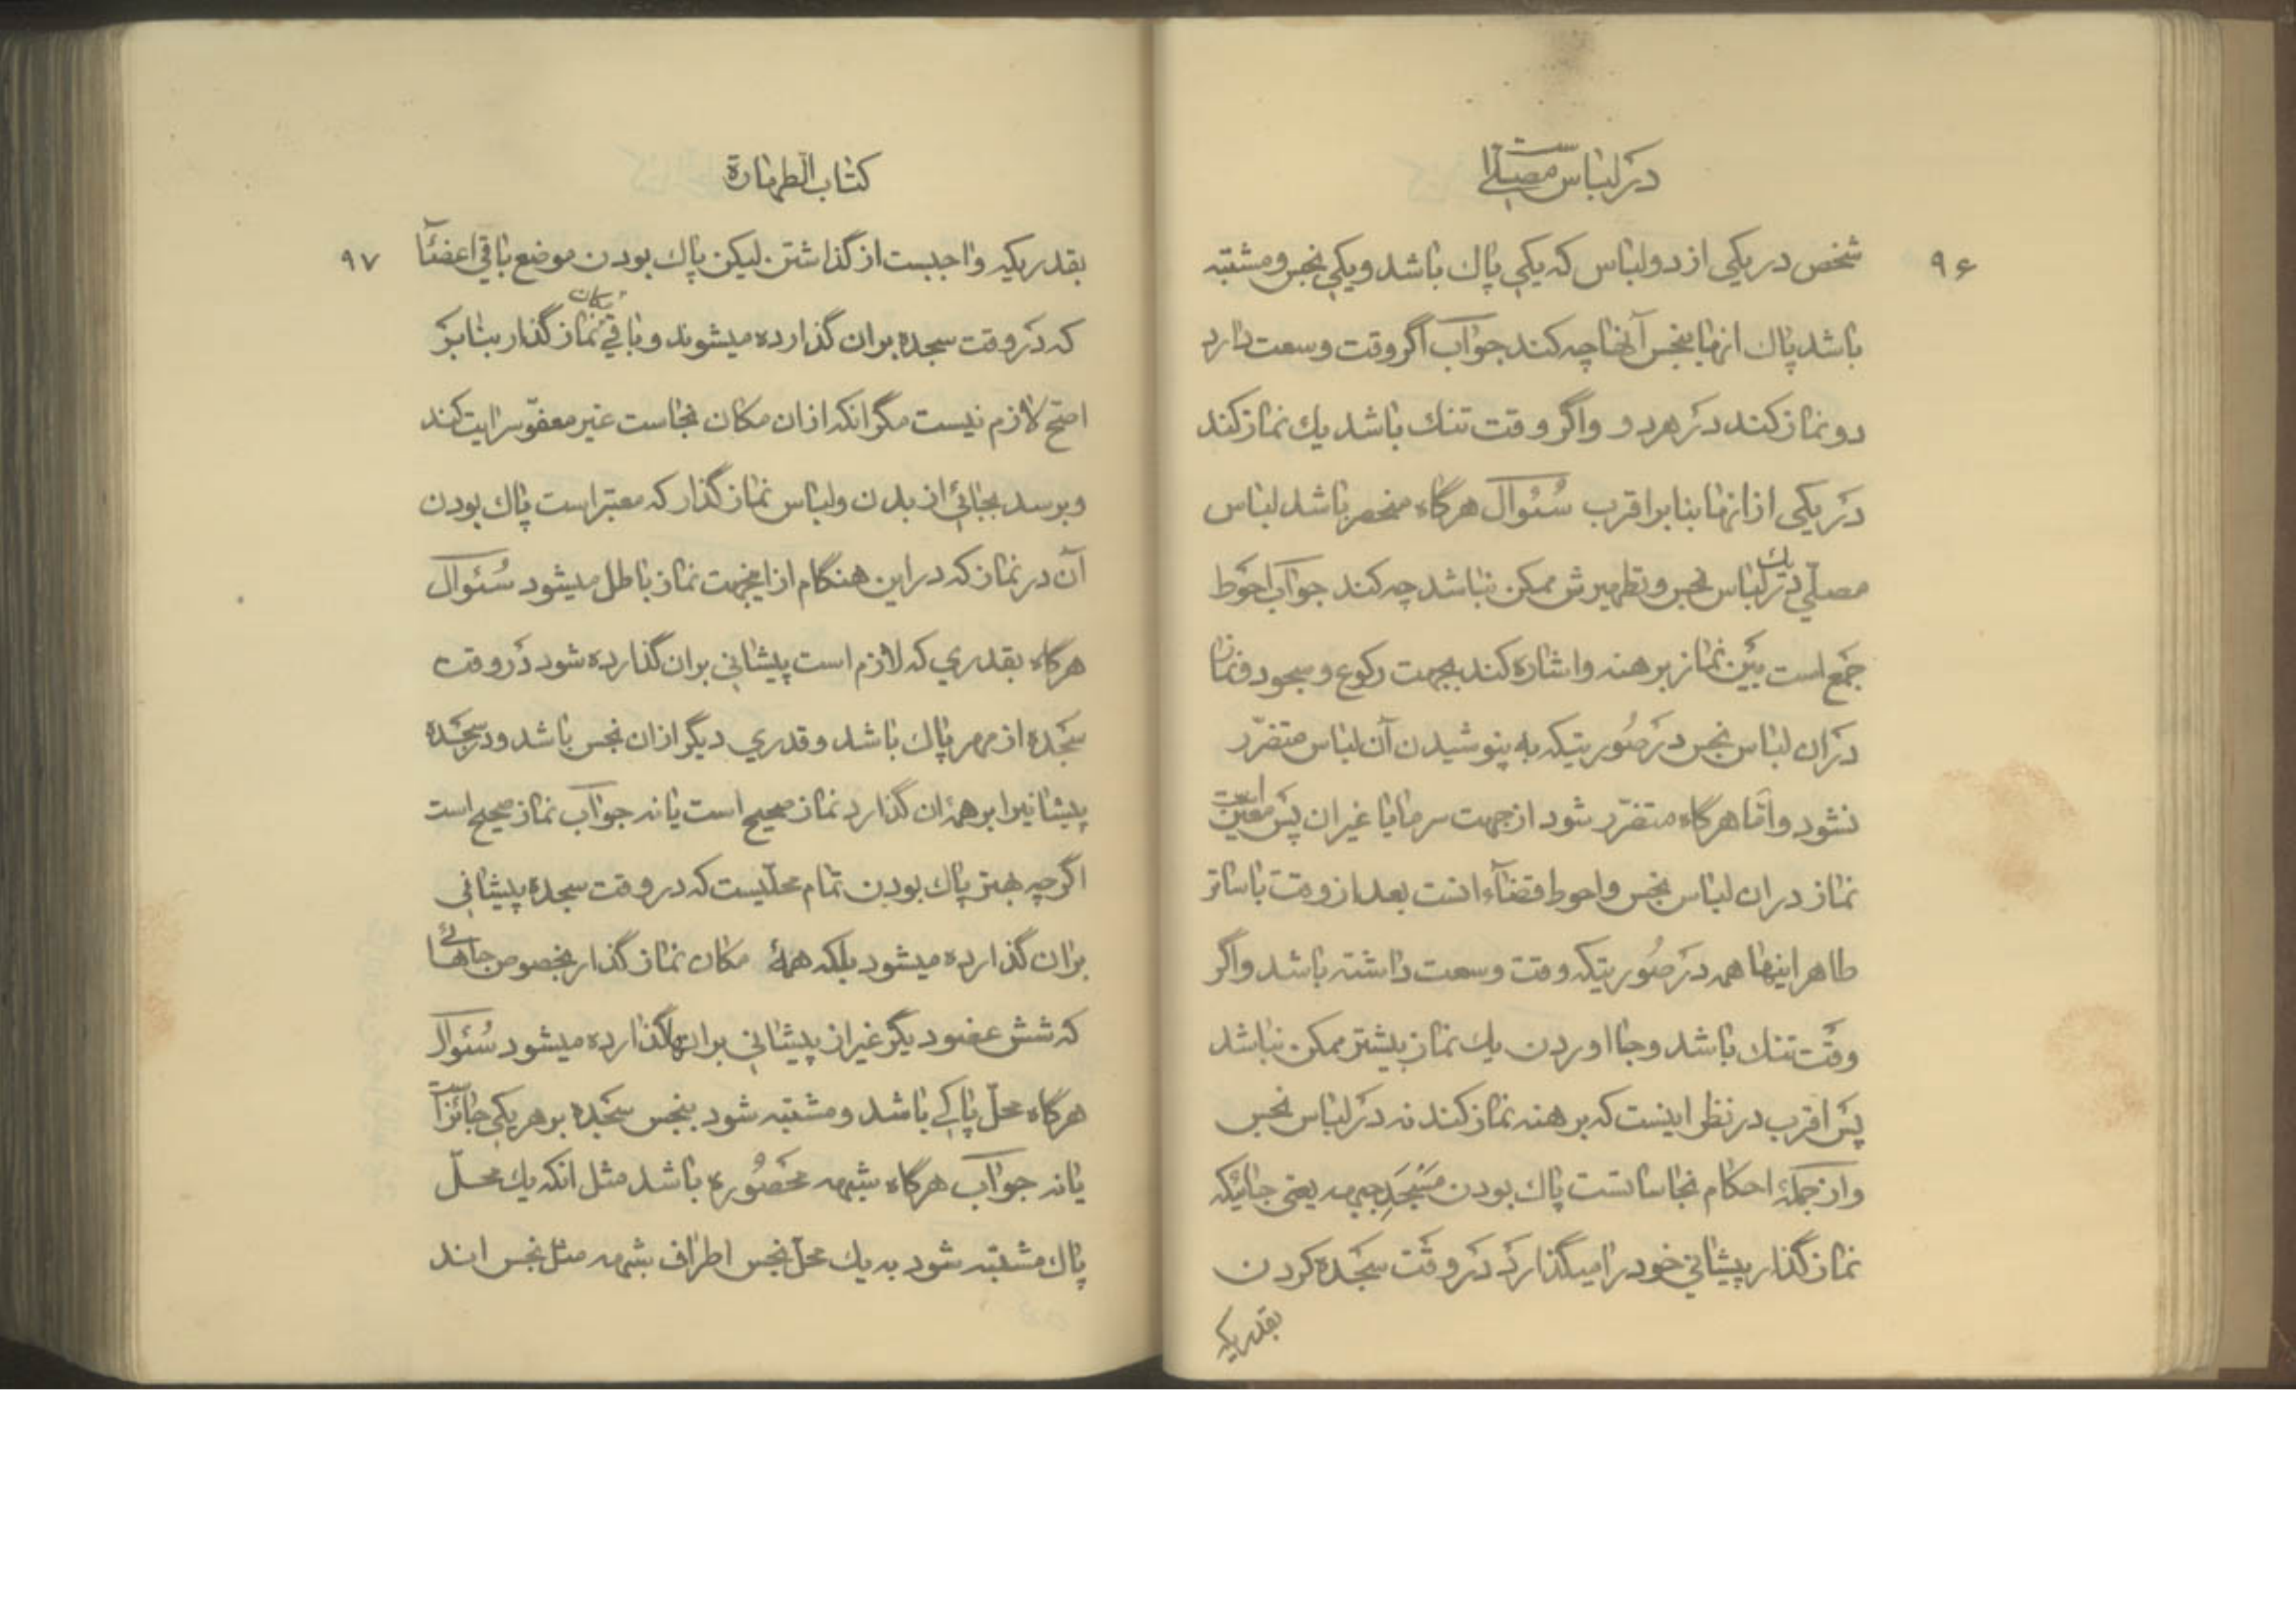 در لباس مصلی است
٩۶
شخص در یکی از دو لباس که یکی پاك باشد و یکی نجس و مشتبه
باشد پاك انها بنجس آنها چه کند جوآب اگر وقت وسعت دارد
دو نماز کند در هر دو و اگر وقت تنك باشد يك نماز کند
در یکی از انها بنا بر اقرب سُئوآل هرگاه منحصر باشد لباس
مصلّی در يك لباس نجس و تطهیرش ممکن نباشد چه کند جوآب احوَط
جمع است بین نماز برهنه و اشاره کند بجهت رکوع و سجود و نماز
در ان لباس نجس در صُورتیکه به پوشیدن آن لباس متضرّر
نشود و امّا هرگاه متضرّر شود از جهت سرما یا غیر ان پس معیّن است
نماز در ان لباس نجس و احوط قضآء انست بعد از وقت با ساتر
طاهر اینها همه در صُورتیکه وقت وسعت داشته باشد و اگر
وقت تنك باشد و جا اوردن يك نماز بیشتر ممکن نباشد
پس اقرب در نظر اینست که برهنه نماز کند نه در لباس نجس
و از جملهٔ احکام نجاسات است پاك بودن مَسْجَدِ جبهه یعنی جائیکه
نماز گذار پیشانی خود را میگذارد در وقت سجده کردن
بقدریکه
کتاب الطهارة
٩٧
بقدریکه واجبست از گذاشتن لیکن پاك بودن موضع باقی اعضآء
که در وقت سجده بر ان گذارده میشوند و باقی مکان نماز گذار بنا بر
اصحّ لازم نیست مگر انکه از ان مکان نجاست غیر معفوّ سرایت کند
و برسد بجائی از بدن و لباس نماز گذار که معتبر است پاك بودن
آن در نماز که در این هنگام از اینجهت نماز باطل میشود سُئوآل
هرگاه بقدری که لازم است پیشانی بر ان گذارده شود در وقت
سجده از مهر پاك باشد و قدری دیگر از ان نجس باشد و در سجده
پیشانیرا بر همهٔ ان گذارد نماز صحیح است یا نه جوآب نماز صحیح است
اگر چه بهتر پاك بودن تمام محلّیست که در وقت سجده پیشانی
بر ان گذارده میشود بلکه همهٔ مکان نماز گذار بخصوص جاهائی
که شش عضو دیگر غیر از پیشانی بر انها گذارده میشود سُئوآل
هرگاه محلّ پاکی باشد و مشتبه شود بنجس سجده بر هر یکی جائز است
یا نه جوآب هرگاه شبهه محصُوره باشد مثل انکه يك محلّ
پاك مشتبه شود به يك محلّ نجس اطراف شبهه مثل نجس اند